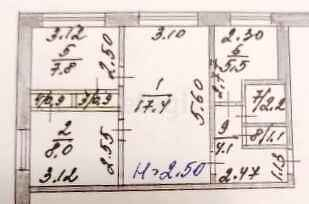 3.12
3.10
2.30
5
7.8
2.50
6
5.5
1
17.4
5.60
4/0.9
3/0.3
7/2.2
2
8.0
2.55
9
4.1
8/1.1
3.12
H=2.50
2.47
1.13